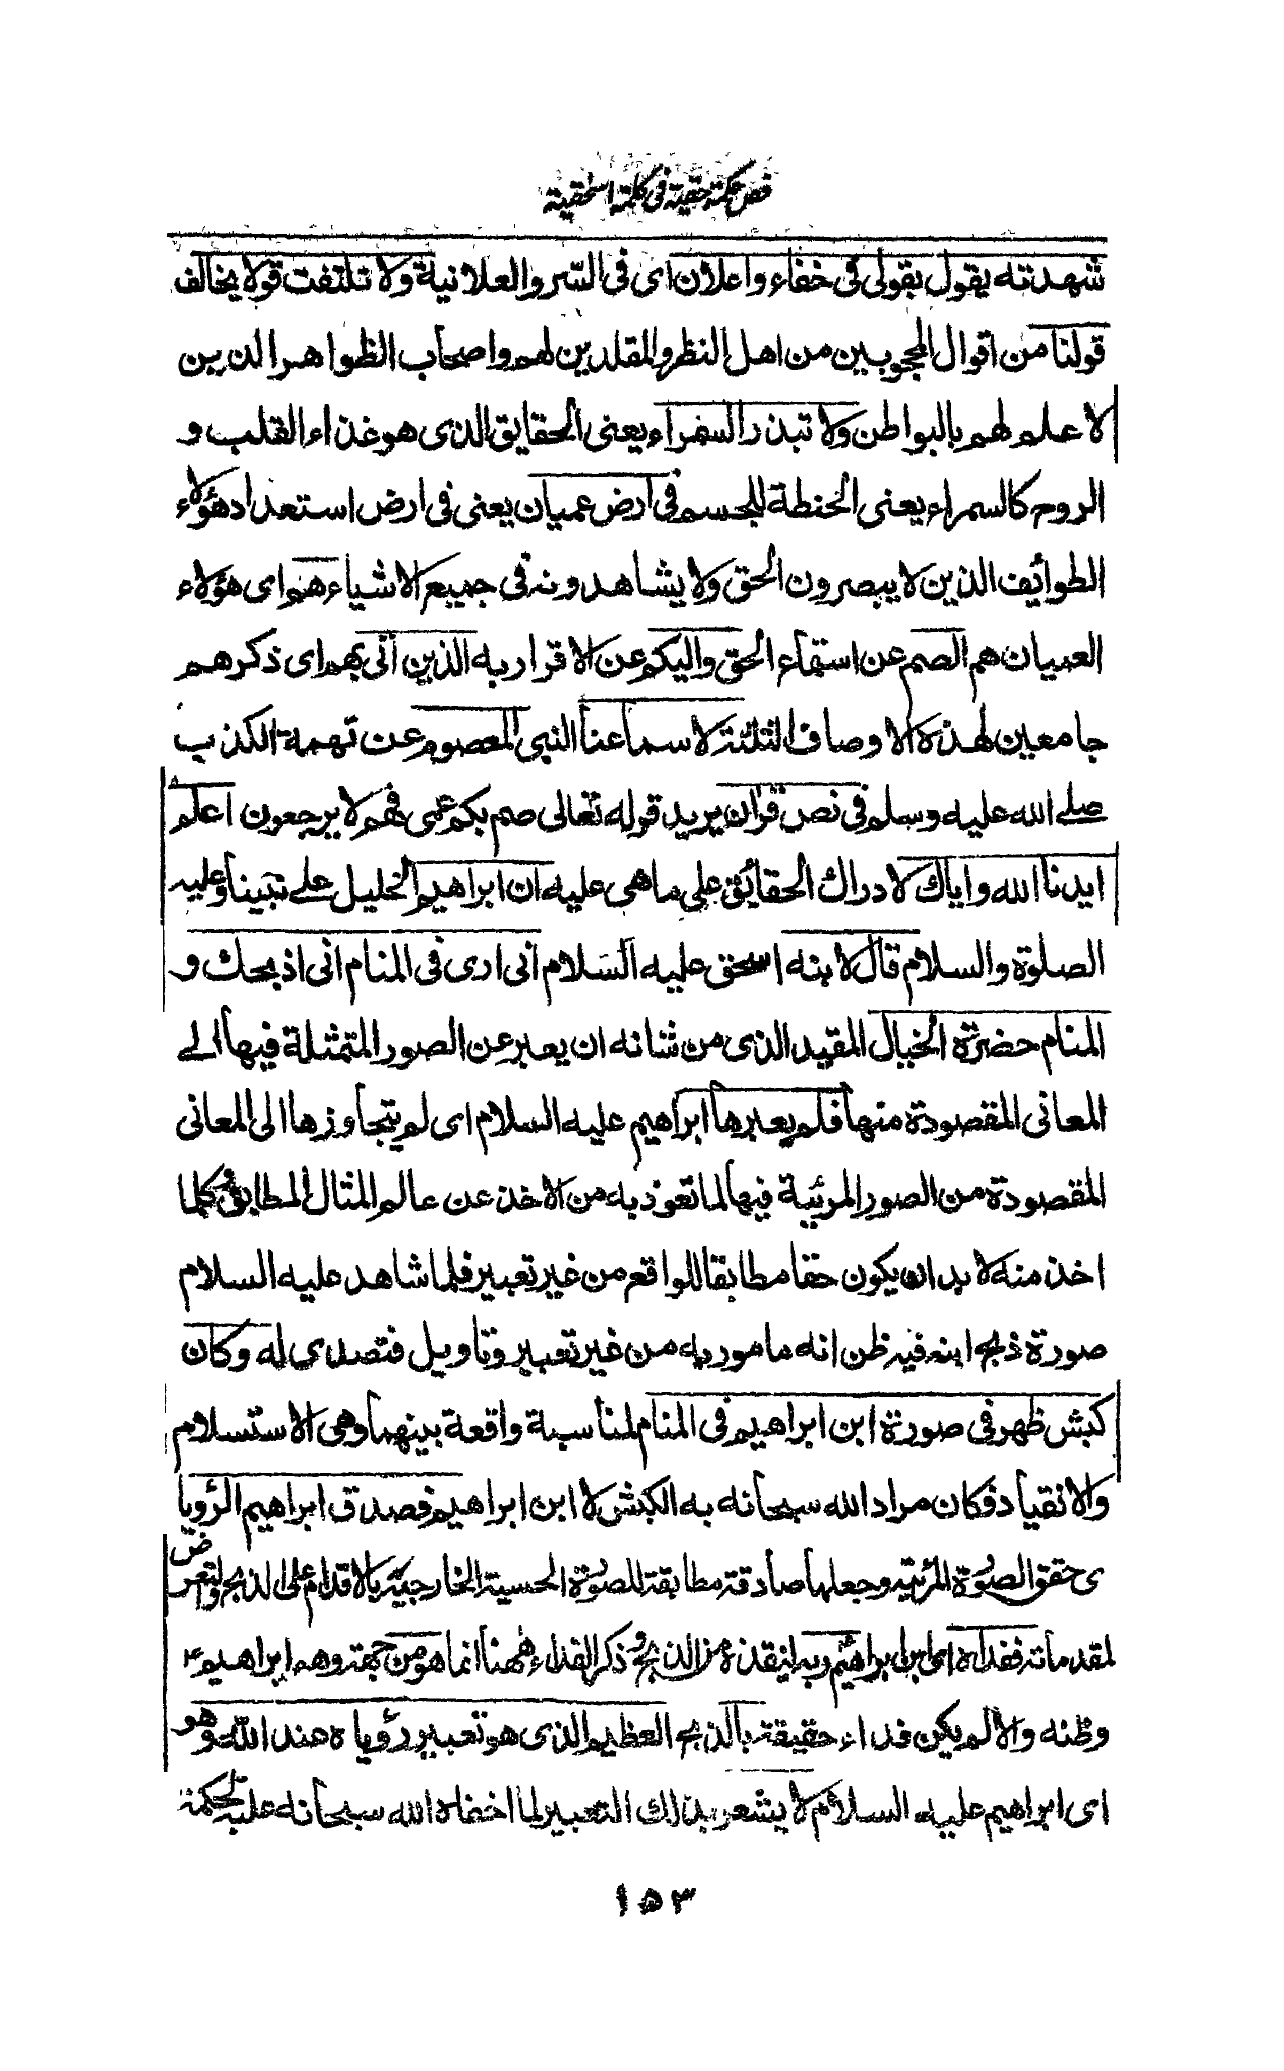 فص حكمة حقية في كلمة اسحقية
شهدته يقول بقولى فى خفاء واعلان اى فى السّر والعلانية ولا تلتفت قولا يخالف
قولنا من اقوال المحجوبين من اهل النظر والمقلدين لهم واصحاب الظواهر الذين
لا علم لهم بالبواطن ولا تبذر السمراء يعنى الحقايق الذى هو غذاء القلب و
الروح كالسمراء يعنى الحنطة للجسم فى ارض عميان يعنى فى ارض استعداد هؤلاء
الطوائف الذين لا يبصرون الحق ولا يشاهدونه فى جميع الاشياء هم اى هؤلاء
العميان هم الصم عن استماء الحق والبكم عن الاقرار به الذين اتى بهم اى ذكرهم
جامعين لهذه الاوصاف الثلثة لاسماعنا النبى المعصوم عن تهمة الكذب
صلے الله عليه وسلم فى نص قرآن يريد قوله تعالى صم بكم عمى فهم لا يرجعون اعلم
ايدنا الله واياك لادراك الحقائق على ما هى عليه ان ابراهيم الخليل علے نبينا وعليه
الصلوة والسلام قال لابنه اسحق عليه السلام انى ارى فى المنام انى اذبحك و
المنام حضرة الخيال المقيد الذى من شانه ان يعبر عن الصور المتمثلة فيها الے
المعانى المقصودة منها فلم يعبرها ابراهيم عليه السلام اى لم يتجاوزها الى المعانى
المقصودة من الصور المرئية فيها لما تعوذ به من الاخذ عن عالم المثال المطابق وكلما
اخذ منه لا بد ان يكون حقا مطابقا للواقع من غير تعبير فلما شاهد عليه السلام
صورة ذبح ابنه فيه ظن انه مامور به من غير تعبير وتاويل فتصدى له وكان
كبش ظهر فى صورة ابن ابراهيم فى المنام لمناسبة واقعة بينهما وهى الاستسلام
والانقياد فكان مراد الله سبحانه به الكبش لا ابن ابراهيم فصدق ابراهيم الرؤيا
ى حقق الصورة المرئية وجعلها صادقة مطابقة للصورة الحسية الخارجية بالاقدام على الذبح والتعرض
لمقدماته ففداه اى ابن ابراهيم ربه لينقذه من الذبح وذكر الفداء ههنا انما هو من جهة وهم ابراهيم ع
وظنه والا لم يكن فداء حقيقة بالذبح العظيم الذى هو تعبير رؤياه عند الله وهو
اى ابراهيم عليه السلام لا يشعر بذلك التعبير لما اخفاه الله سبحانه عليه لحكمة
١٥٣